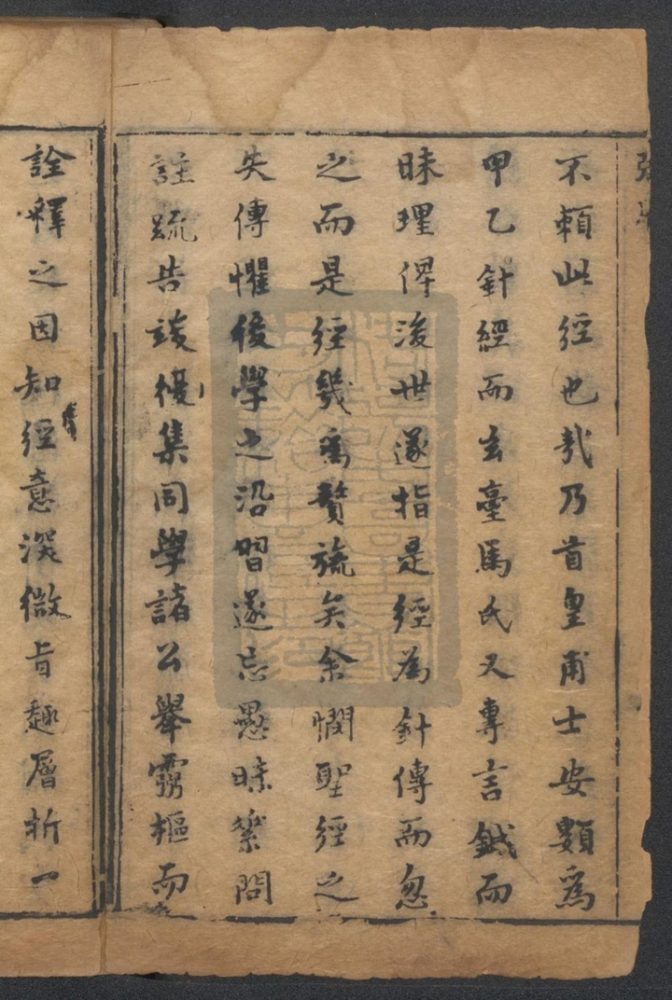 不賴此經也哉乃首皇甫士安類爲
甲乙針經而玄臺馬氏又專言鍼而
昧理俾後世遂指是經為針傳而忽
之而是經幾為贅旒矣余憫聖經之
失傳懼後學之沿習遂忘愚昧素問
註疏告竣復集同學諸公舉靈樞而
詮釋之因知經意深微旨趣層折一